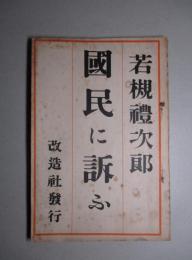 若槻禮次郎
國民に訴ふ
改造社發行